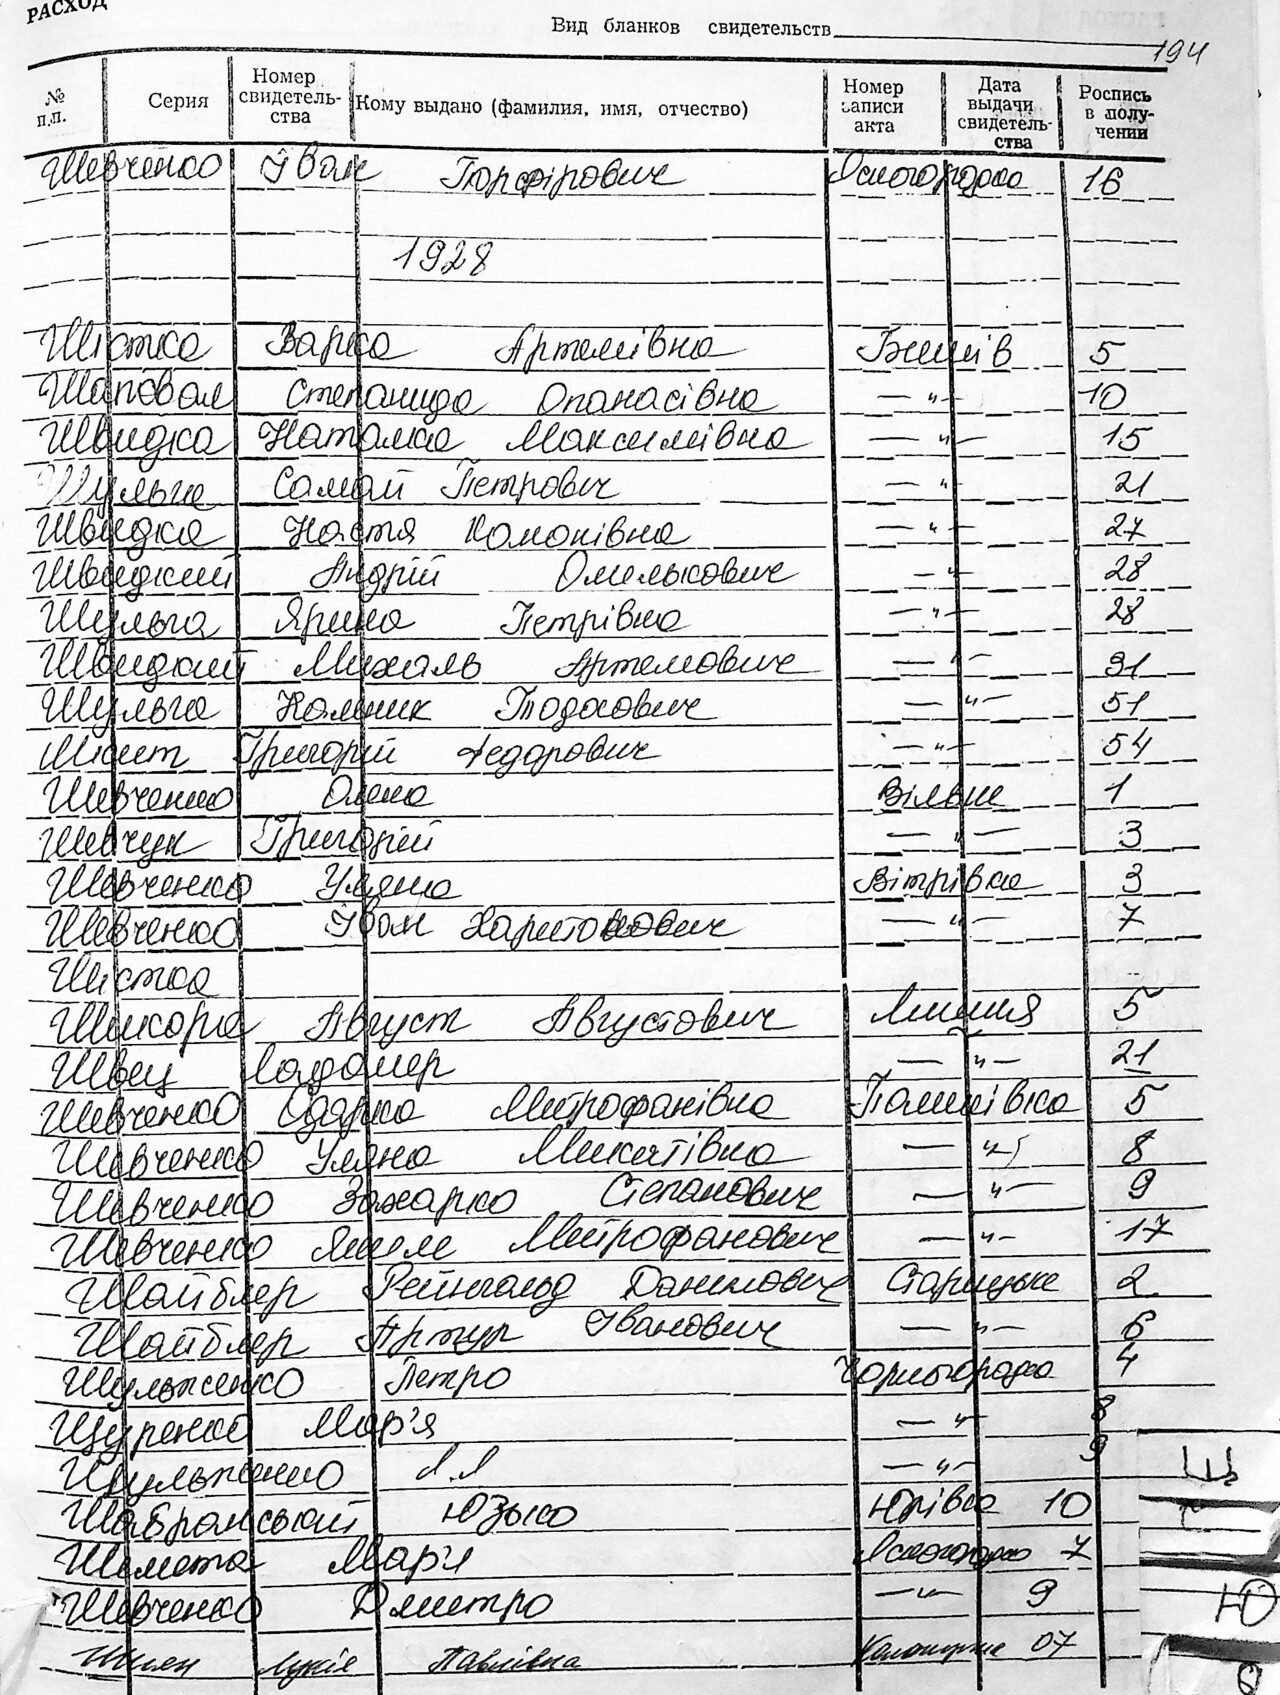 РАСХОД
Вид бланков свидетельств
194
№ п.п. Серия Номер свидетель-ства Кому выдано (фамилия, имя, отчество) Номер записи акта Дата выдачи свидетель-ства Роспись в полу-чении
Шевченко Іван Порфірович Ясногородка 16
1928
Шістка Варка Артемівна Бишів 5
Шаповал Степанида Опанасівна —"— 10
Швидка Наталка Максимівна —"— 15
Шульга Самай Петрович —"— 21
Швидка Настя Кононівна —"— 27
Швидкий Андрій Омелькович —"— 28
Шульга Ярина Петрівна —"— 28
Швидкий Михаль Артемович —"— 31
Шульга Кальник Тодосович —"— 51
Григорій Федорович —"— 54
Шевченко Олена Вільне 1
Шевчук Григорій —"— 3
Шевченко Уляна Вітрівка 3
Шевченко Іван Харитонович —"— 7
Шістка
Шикора Август Августович Лишня 5
Швец —"— 21
Шевченко Одарка Митрофанівна Пашківка 5
Шевченко Уляна Микитівна —"— 8
Шевченко Захарко Степанович —"— 9
Шевченко Яким Митрофанович —"— 17
Шайблер Рейнгольд Данилович Старицьке 2
Шайблер Артур Іванович —"— 6
Шульженко Петро Чорногородка 4
Щуренко Мар'я —"— 8
Шульженко —"— 9
Шабранський Юзько Юрівка 10
Шемета Мар'я Ясногородка 7
Шевченко Дмитро —"— 9
Шиян Лукія Павлівна 07
Щ
Ю